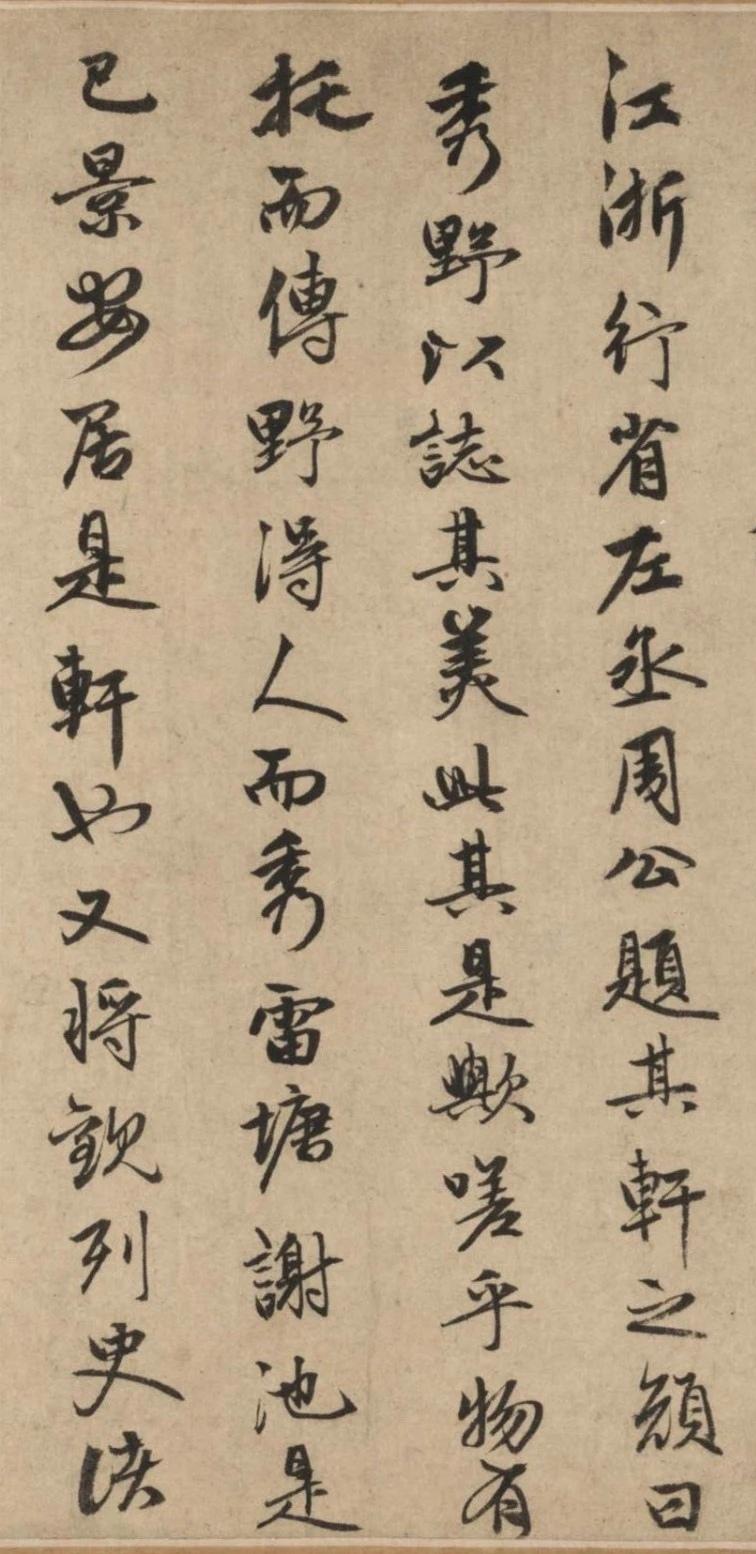 江浙行省左丞周公題其軒之顏曰
秀野以誌其美此其是歟嗟乎物有
托而傳野得人而秀雷塘謝池是
已景安居是軒也又將觀列史讀